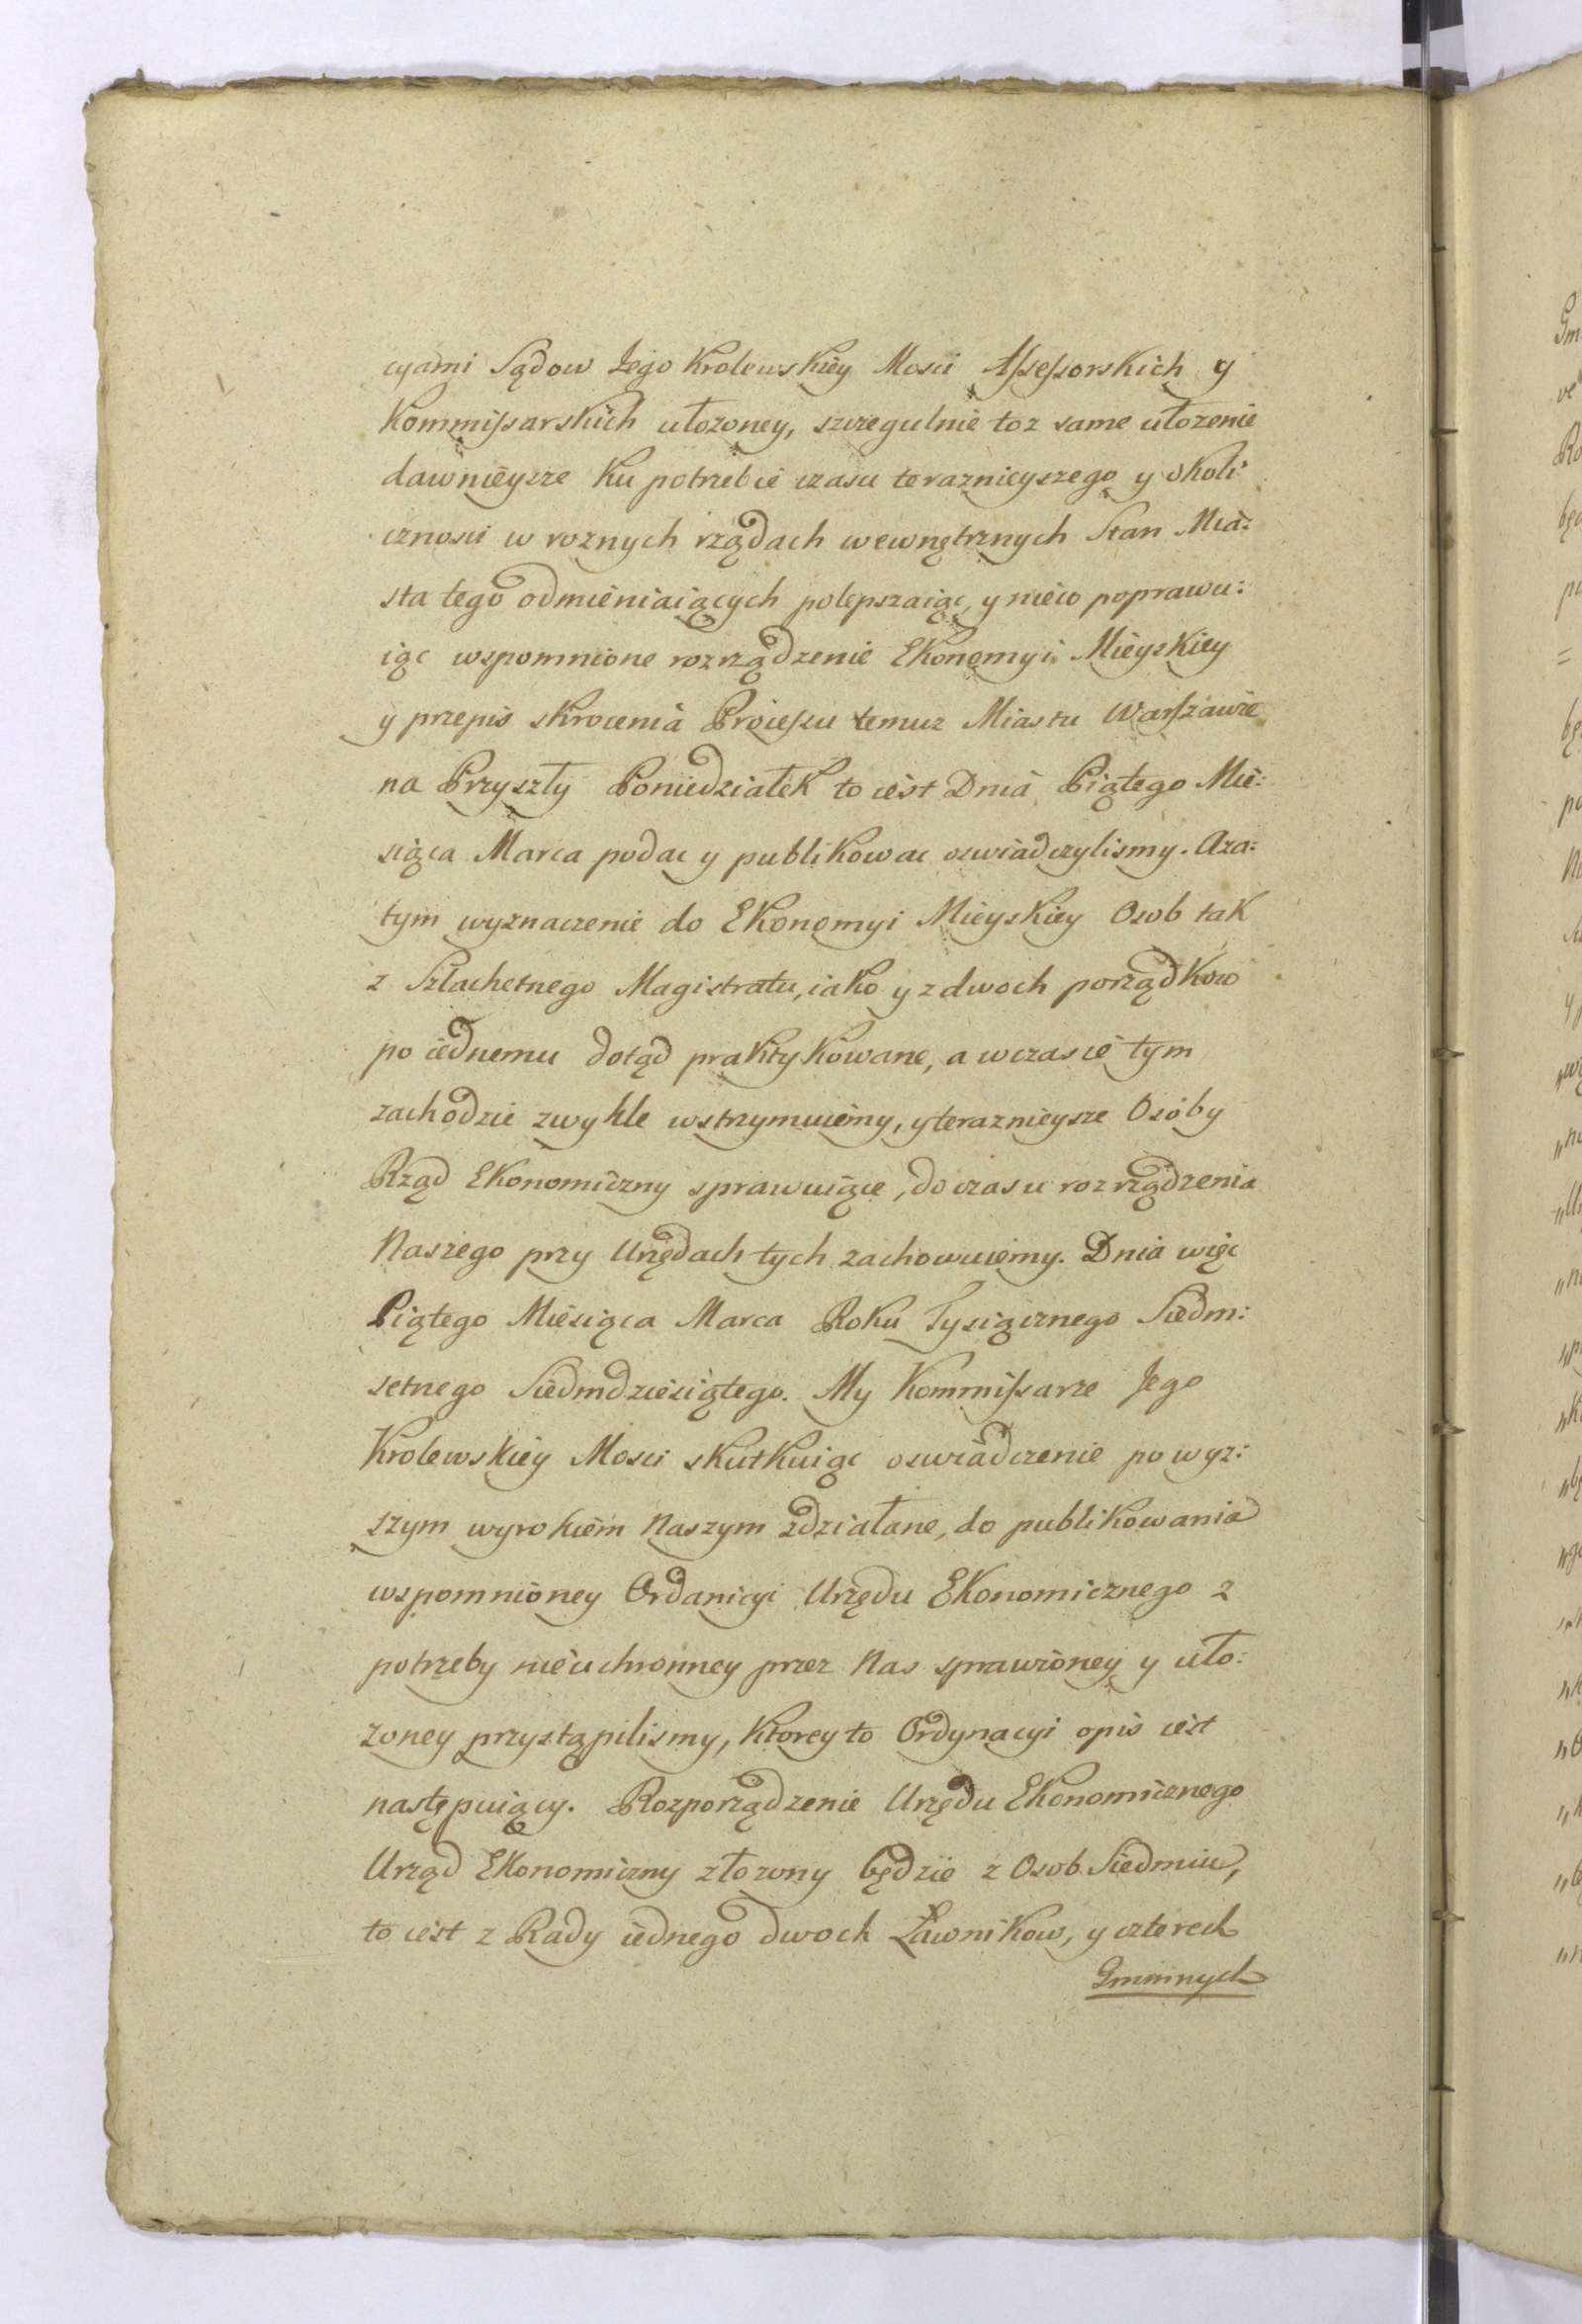 cyami Sądow Jego Krolewskiey Mosci Assessorskich y
Kommissarskich ułozoney, szczegulnie toz same ułozenie
dawnieysze ku potrzebie czasu teraznieyszego y okoli:
cznosci w roznych rządach wewnętrznych Stan Mia:
sta tego odmieniaiących polepszaiąc, y nieco poprawu:
iąc wspomnione rozrządzenie Ekonomyi Mieyskiey
y przepis skrocenia Processu temuz Miastu Warszawie
na Przyszły Poniedziałek to iest Dnia Piątego Mie:
siąca Marca podac y publikowac oswiadczylismy. Aza:
tym wyznaczenie do Ekonomyi Mieyskiey Osob tak
z Szlachetnego Magistratu, iako y z dwoch porządkow
po iednemu dotąd praktykowane, a w czasie tym
zachodzie zwykle wstrzymuiemy, y teraznieysze Osoby
Rząd Ekonomiczny sprawuiące, do czasu rozrządzenia
Naszego przy Urzędach tych zachowuiemy. Dnia więc
Piątego Miesiąca Marca Roku Tysiącznego Siedm:
setnego Siedmdziesiątego. My Kommissarze Jego
Krolewskiey Mosci skutkuiąc oswiadczenie powyz:
szym wyrokiem Naszym zdziałane, do publikowania
wspomnioney Ordanicyi Urzędu Ekonomicznego z
potrzeby nieuchronney przez Nas sprawioney y uło:
zoney przystąpilismy, ktorey to Ordynacyi opis iest
następuiący. Rozporządzenie Urzędu Ekonomicznego
Urząd Ekonomiczny złozony będzie z Osob Siedmiu,
to iest z Rady iednego dwoch Ławnikow, y czterech
Gminnych